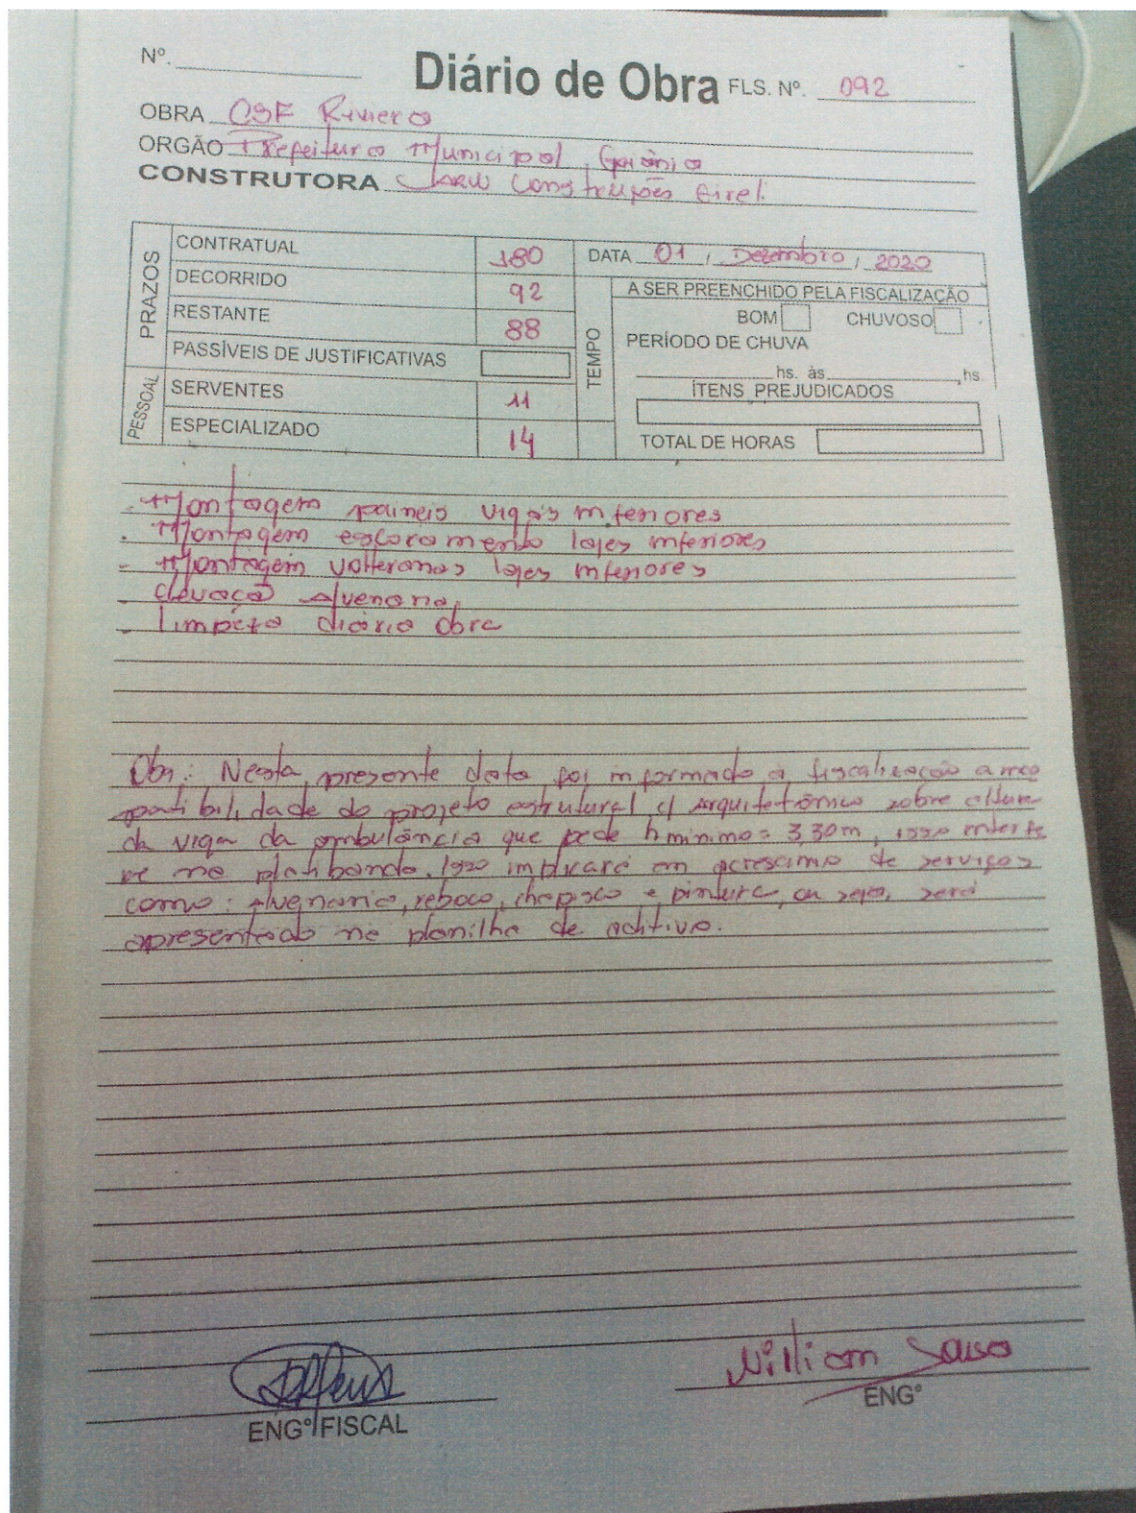 Nº.
Diário de Obra FLS. Nº. 092
OBRA CSF Riviera
ORGÃO Prefeitura Municipal Goiânia
CONSTRUTORA Construções Eireli
PRAZOS
CONTRATUAL 180
DECORRIDO 92
RESTANTE 88
PASSÍVEIS DE JUSTIFICATIVAS
PESSOAL
SERVENTES 11
ESPECIALIZADO 14
DATA 01 / Dezembro / 2020
TEMPO
A SER PREENCHIDO PELA FISCALIZAÇÃO
BOM CHUVOSO
PERÍODO DE CHUVA
hs. às , hs.
ÍTENS PREJUDICADOS
TOTAL DE HORAS
- Montagem paineis vigas inferiores
- Montagem escoramento lajes inferiores
- Montagem volteranas lajes inferiores
- Elevação Alvenaria
- Limpeza diária obra
Obs: Nesta presente data foi informado a fiscalização a inco
patibilidade do projeto estrutural c/ Arquitetônico sobre altura
da viga da ambulância que pede h mínimo = 3,30m, isso interfe
re na platibanda. Isso implicará em acrescimo de serviços
como: Alvenaria, reboco, chapisco e pintura, ou seja, será
apresentado na planilha de aditivo.
ENGº FISCAL
Willian Sousa
ENGº